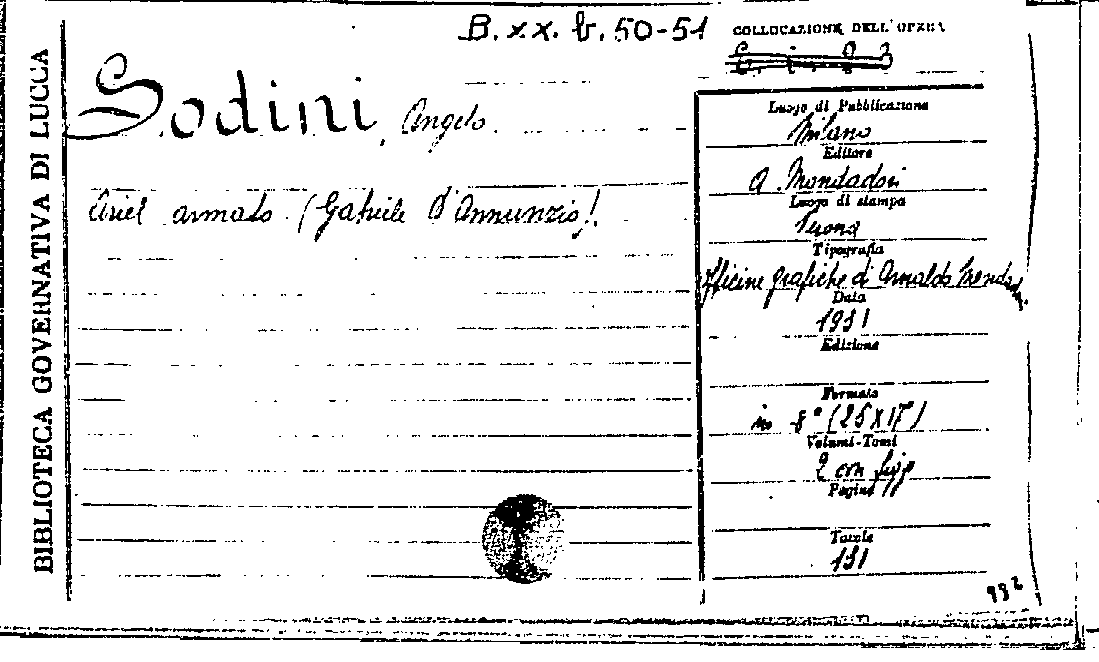 BIBLIOTECA GOVERNATIVA DI LUCCA
B. xx. b. 50-51
COLLOCAZIONE DELL'OPERA
Sodini, Angelo.
Ariel armato. (Gabriele d'Annunzio).
Luogo di Pubblicazione
Milano
Editore
A. Mondadori
Luogo di stampa
Verona
Tipografia
Officine grafiche di Arnaldo Mondad.
Data
1931
Edizione
Formato
in 8° (25X17)
Volumi-Tomi
2 con figg
Pagine
Tavole
131
932